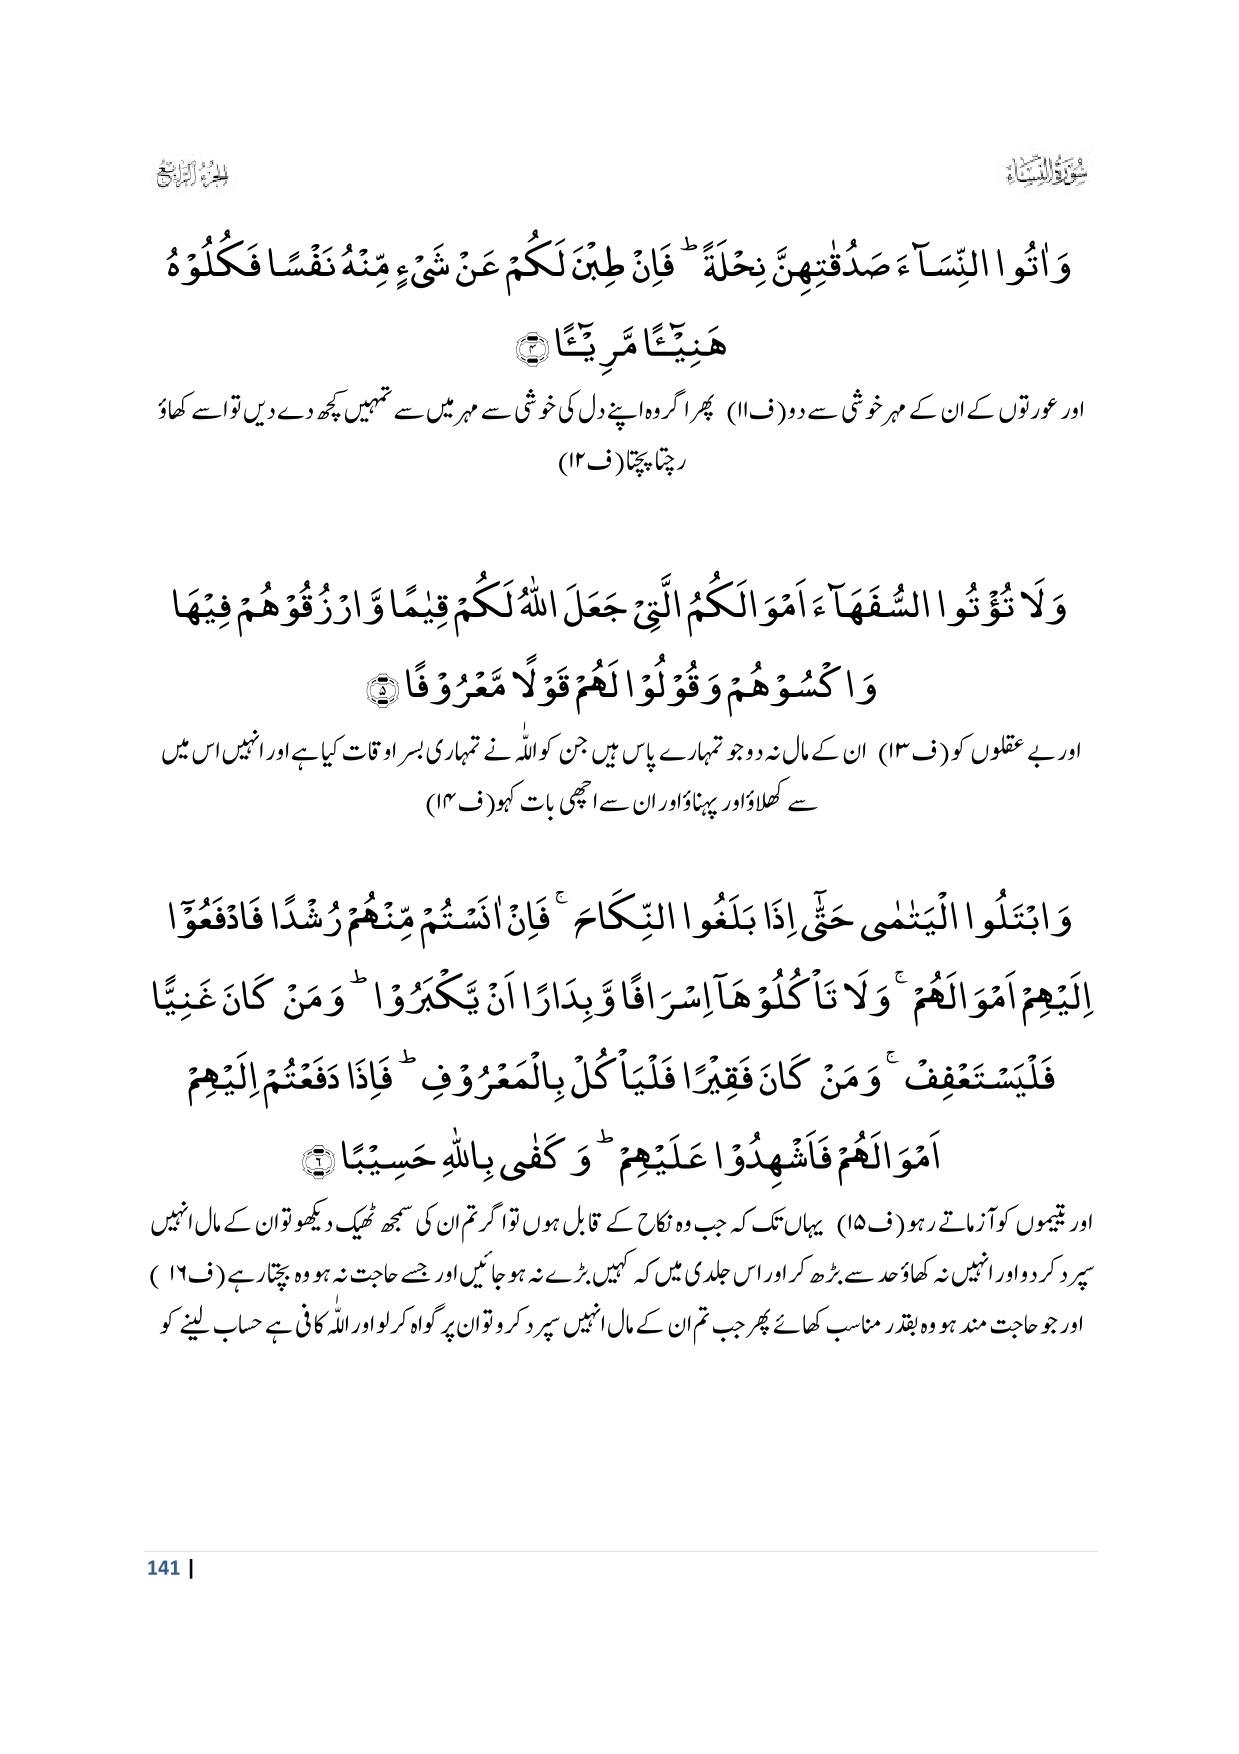 سُوْرَۃُ النِّسَآء
الجزء الرابع
وَ اٰتُوا النِّسَآءَ صَدُقٰتِهِنَّ نِحْلَةً ؕ فَاِنْ طِبْنَ لَكُمْ عَنْ شَیْءٍ مِّنْهُ نَفْسًا فَكُلُوْهُ
هَنِیْٓـًٔا مَّرِیْٓـًٔا ﴿۴﴾
اور عورتوں کے ان کے مہر خوشی سے دو (ف۱۱) پھر اگر وہ اپنے دل کی خوشی سے مہر میں سے تمہیں کچھ دے دیں تو اسے کھاؤ
رچتا پچتا (ف۱۲)
وَ لَا تُؤْتُوا السُّفَهَآءَ اَمْوَالَكُمُ الَّتِیْ جَعَلَ اللهُ لَكُمْ قِیٰمًا وَّ ارْزُقُوْهُمْ فِیْهَا
وَ اكْسُوْهُمْ وَ قُوْلُوْا لَهُمْ قَوْلًا مَّعْرُوْفًا ﴿۵﴾
اور بے عقلوں کو (ف۱۳) ان کے مال نہ دو جو تمہارے پاس ہیں جن کو اللّٰہ نے تمہاری بسر اوقات کیا ہے اور انہیں اس میں
سے کھلاؤ اور پہناؤ اور ان سے اچھی بات کہو (ف۱۴)
وَ ابْتَلُوا الْیَتٰمٰی حَتّٰۤی اِذَا بَلَغُوا النِّكَاحَ ۚ فَاِنْ اٰنَسْتُمْ مِّنْهُمْ رُشْدًا فَادْفَعُوْۤا
اِلَیْهِمْ اَمْوَالَهُمْ ۚ وَ لَا تَاْكُلُوْهَاۤ اِسْرَافًا وَّ بِدَارًا اَنْ یَّكْبَرُوْا ؕ وَ مَنْ كَانَ غَنِیًّا
فَلْیَسْتَعْفِفْ ۚ وَ مَنْ كَانَ فَقِیْرًا فَلْیَاْكُلْ بِالْمَعْرُوْفِ ؕ فَاِذَا دَفَعْتُمْ اِلَیْهِمْ
اَمْوَالَهُمْ فَاَشْهِدُوْا عَلَیْهِمْ ؕ وَ كَفٰی بِاللهِ حَسِیْبًا ﴿۶﴾
اور یتیموں کو آزماتے رہو (ف۱۵) یہاں تک کہ جب وہ نکاح کے قابل ہوں تو اگر تم ان کی سمجھ ٹھیک دیکھو تو ان کے مال انہیں
سپرد کر دو اور انہیں نہ کھاؤ حد سے بڑھ کر اور اس جلدی میں کہ کہیں بڑے نہ ہو جائیں اور جسے حاجت نہ ہو وہ بچتا رہے (ف۱۶ )
اور جو حاجت مند ہو وہ بقدر مناسب کھائے پھر جب تم ان کے مال انہیں سپرد کرو تو ان پر گواہ کر لو اور اللّٰہ کافی ہے حساب لینے کو
141 |